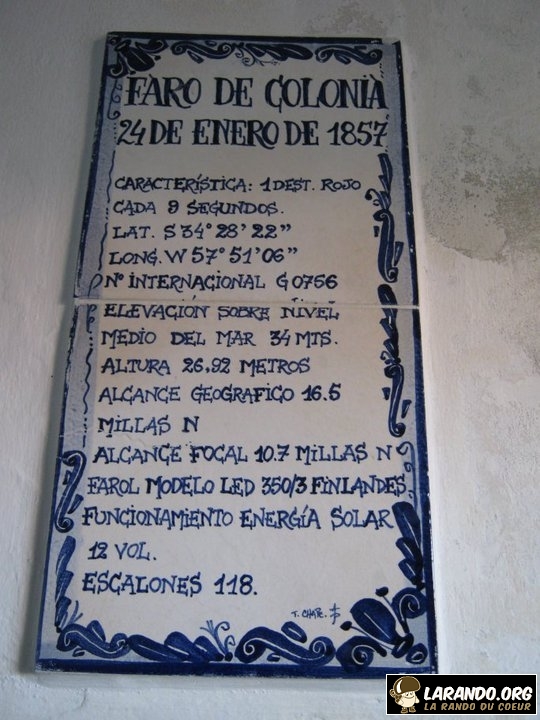 FARO DE COLONIA
24 DE ENERO DE 1857
CARACTERÍSTICA: 1 DEST. ROJO
CADA 9 SEGUNDOS.
LAT. S 34° 28' 22"
LONG. W 57° 51' 06"
N° INTERNACIONAL G 0756
ELEVACIÓN SOBRE NIVEL
MEDIO DEL MAR 34 MTS.
ALTURA 26.92 METROS
ALCANCE GEOGRAFICO 16.5
MILLAS N
ALCANCE FOCAL 10.7 MILLAS N
FAROL MODELO LED 350/3 FINLANDES.
FUNCIONAMIENTO ENERGÍA SOLAR
12 VOL.
ESCALONES 118.
LARANDO.ORG
LA RANDO DU COEUR